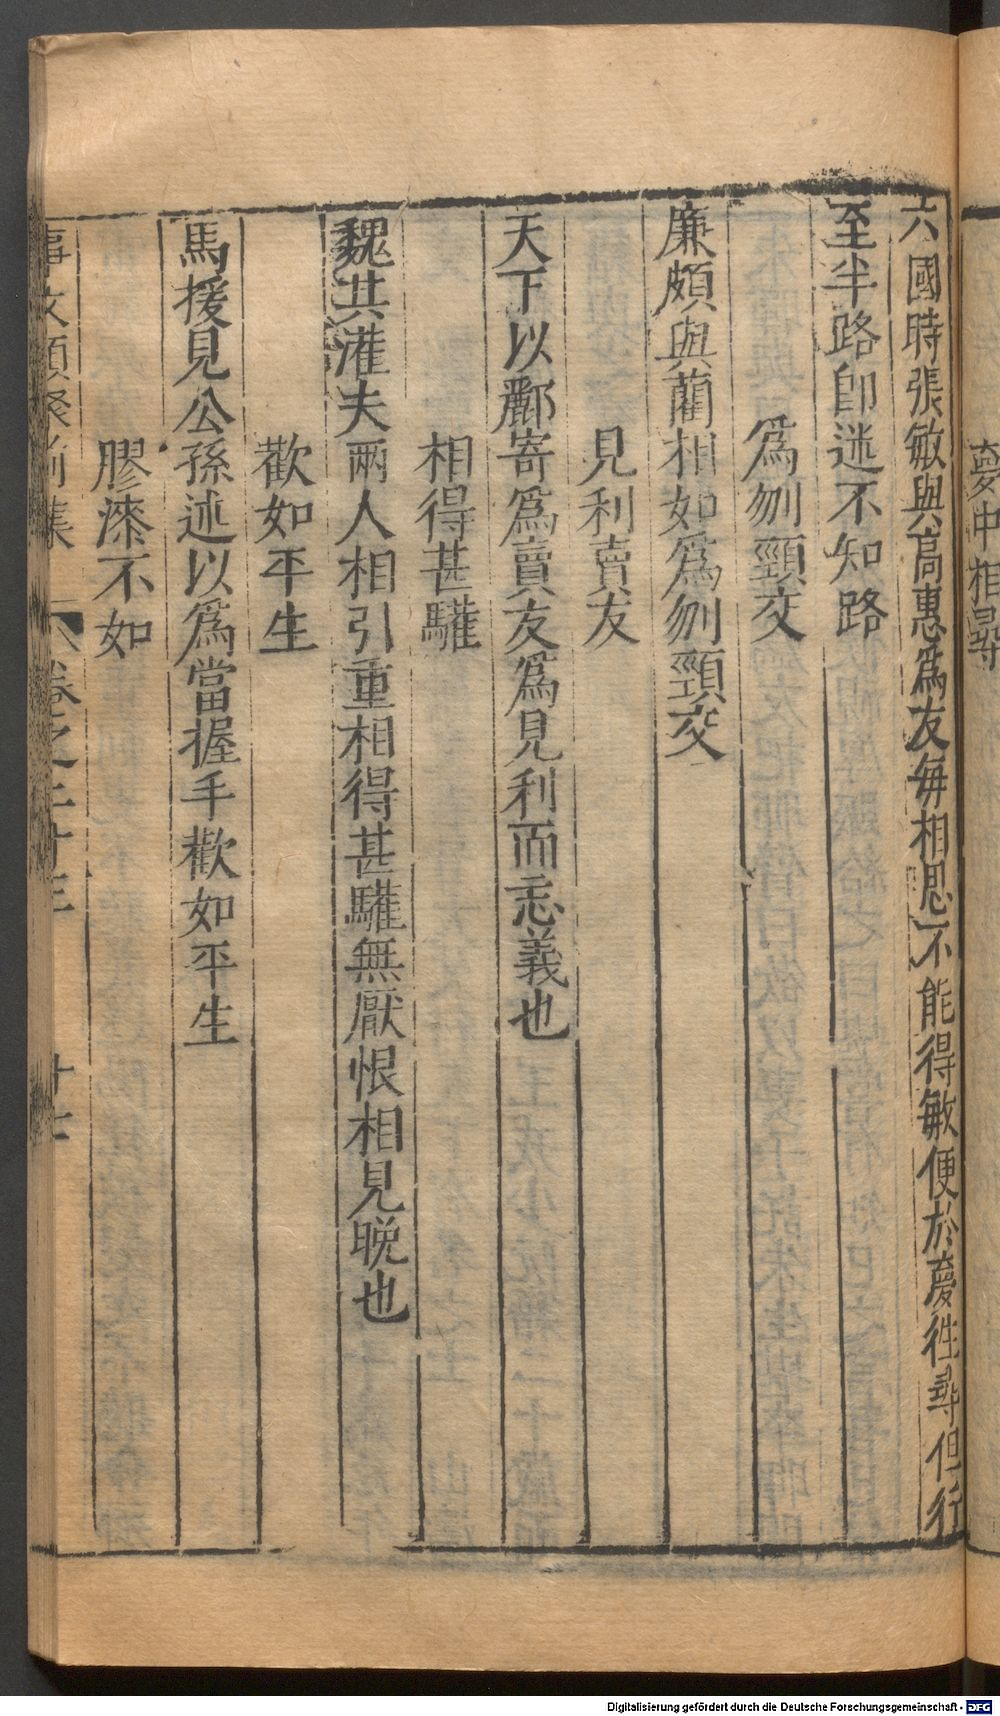 夢中相尋
六國時張敏與高惠爲友每相思不能得敏便於夢徃尋但行
至半路卽迷不知路
爲刎頸交
廉頗與藺相如爲刎頸交
見利賣友
天下以酈寄爲賣友爲見利而忘義也
相得甚驩
魏其灌夫兩人相引重相得甚驩無厭恨相見晚也
歡如平生
馬援見公孫述以爲當握手歡如平生
膠漆不如
事文類聚前集 卷之二十三 廿七
Digitalisierung gefördert durch die Deutsche Forschungsgemeinschaft - DFG